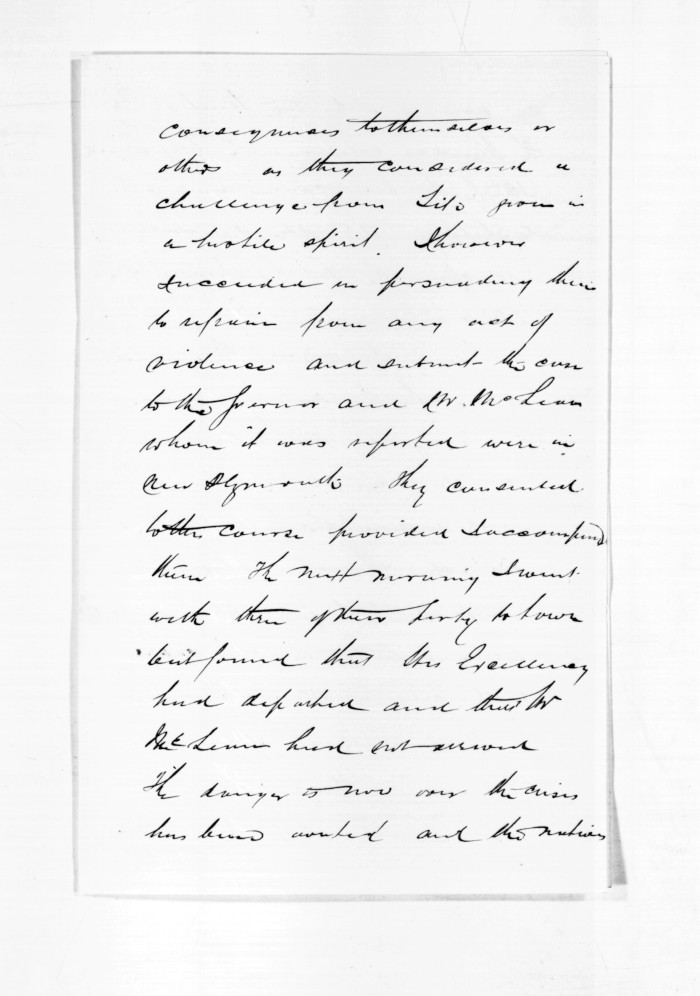 consequences to themselves or
others as they considered a
challenge from given in
a hostile spirit. I however
succeeded in persuading them
to refrain from any act of
violence and submit the case
to the Governor and Mr. McLean
whom it was reported were in
New Plymouth They consented
to this course provided I accompand
them The next morning I went
with three of their party to town
but found that His Excellency
had departed and that Mr
McLean had not arrived
The danger is now over the crisis
has been averted and the natives